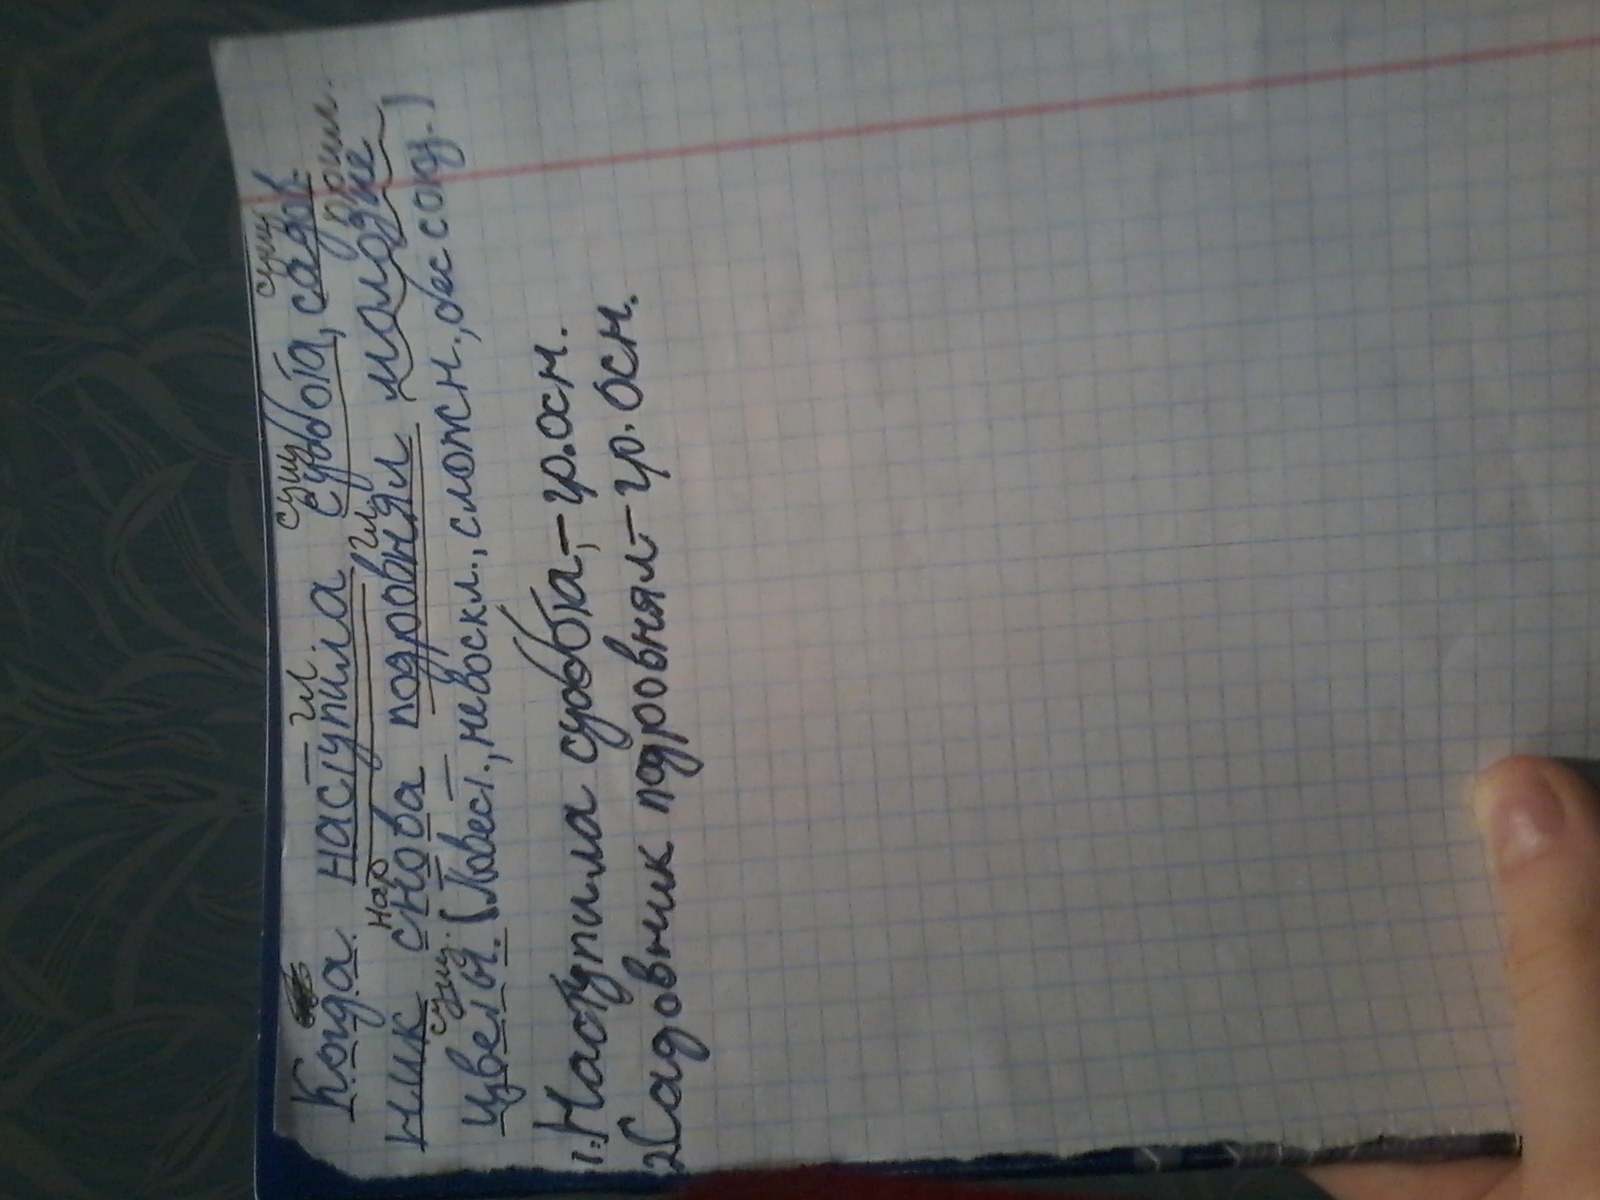 сущ сущ
гл.
Когда наступила суббота, садов
нар гл. прил.
ник снова подровнял молодые
сущ.
цветы. (Повест., невоскл., сложн., бессоюз.)
1. Наступила суббота, - гр. осн.
2 Садовник подровнял - гр. осн.